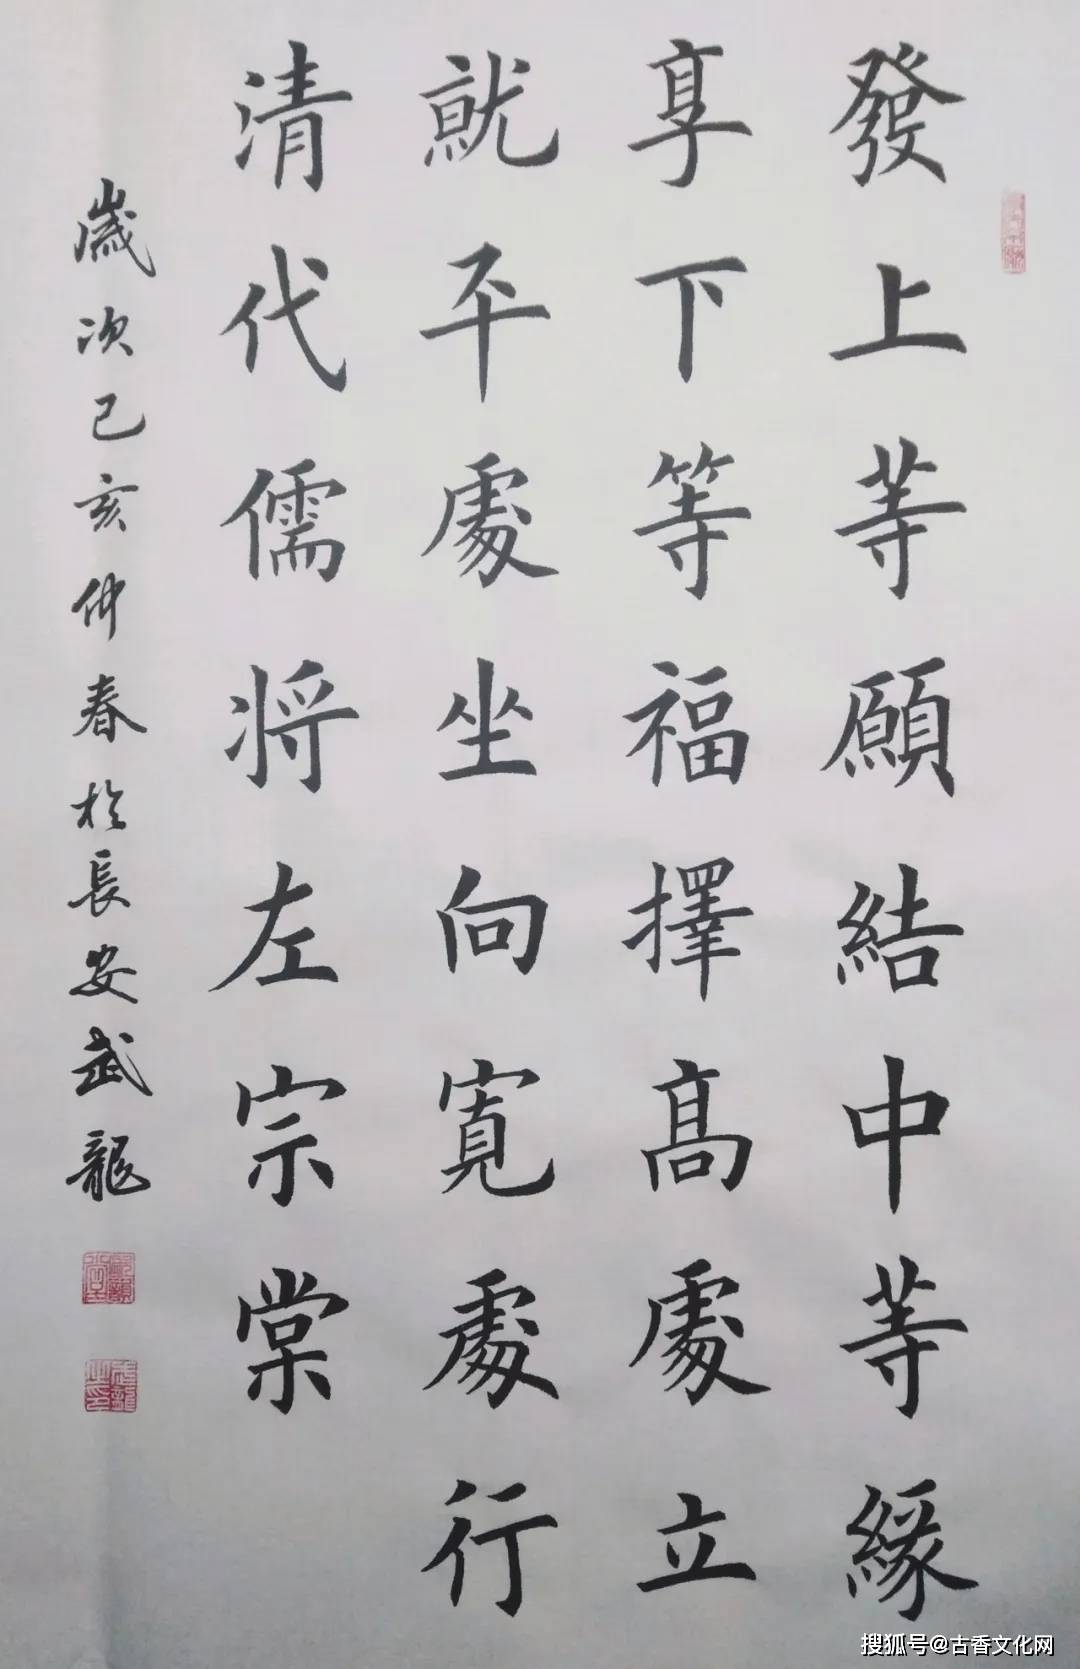 發上等願結中等緣
享下等福擇高處立
就平處坐向寬處行
清代儒将左宗棠
歲次己亥仲春於長安武龍
搜狐号@古香文化网